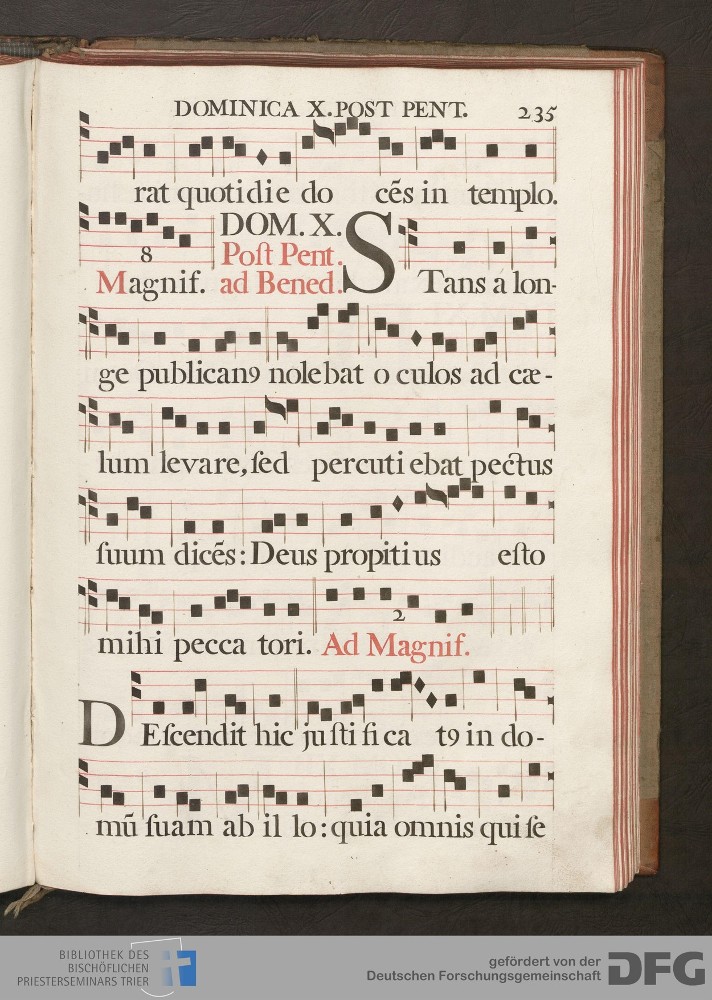 DOMINICA X. POST PENT. 235
rat quotidie do cẽs in templo.
8
Magnif.
DOM. X.
Poſt Pent.
ad Bened.
STans a lon-
ge publicanꝰ nolebat o culos ad cæ-
lum levare, ſed percuti ebat pectus
ſuum dicẽs: Deus propiti us eſto
mihi pecca tori. Ad Magnif.
2
DEſcendit hic ju ſti fi ca tꝰ in do-
mũ ſuam ab il lo: quia omnis qui ſe
BIBLIOTHEK DES
BISCHÖFLICHEN
PRIESTERSEMINARS TRIER
gefördert von der
Deutschen Forschungsgemeinschaft
DFG